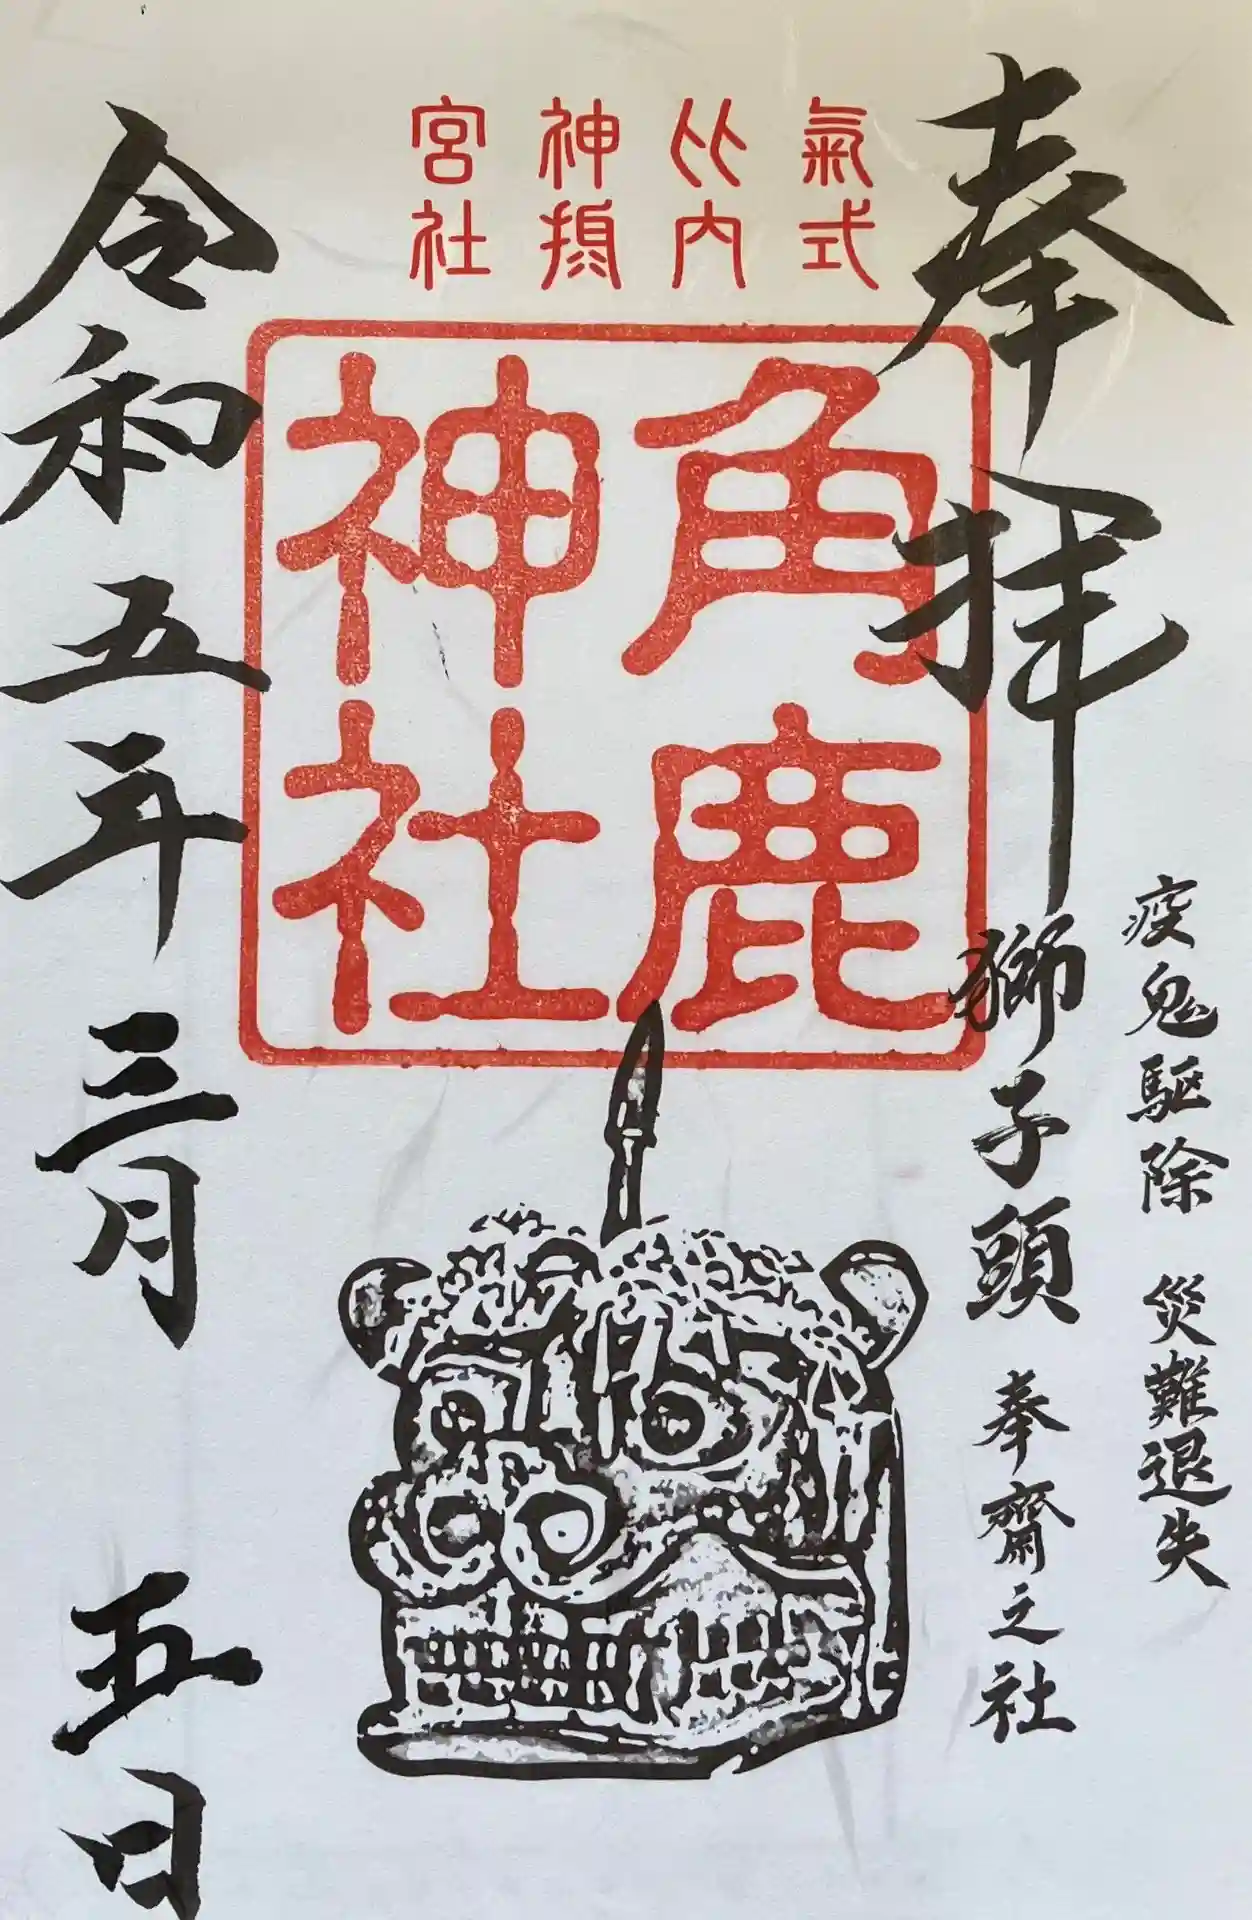 疫鬼駆除 災難退失
奉拝
獅子頭 奉齋之社
氣比神宮
式内摂社
角鹿
神社
令和五年三月五日